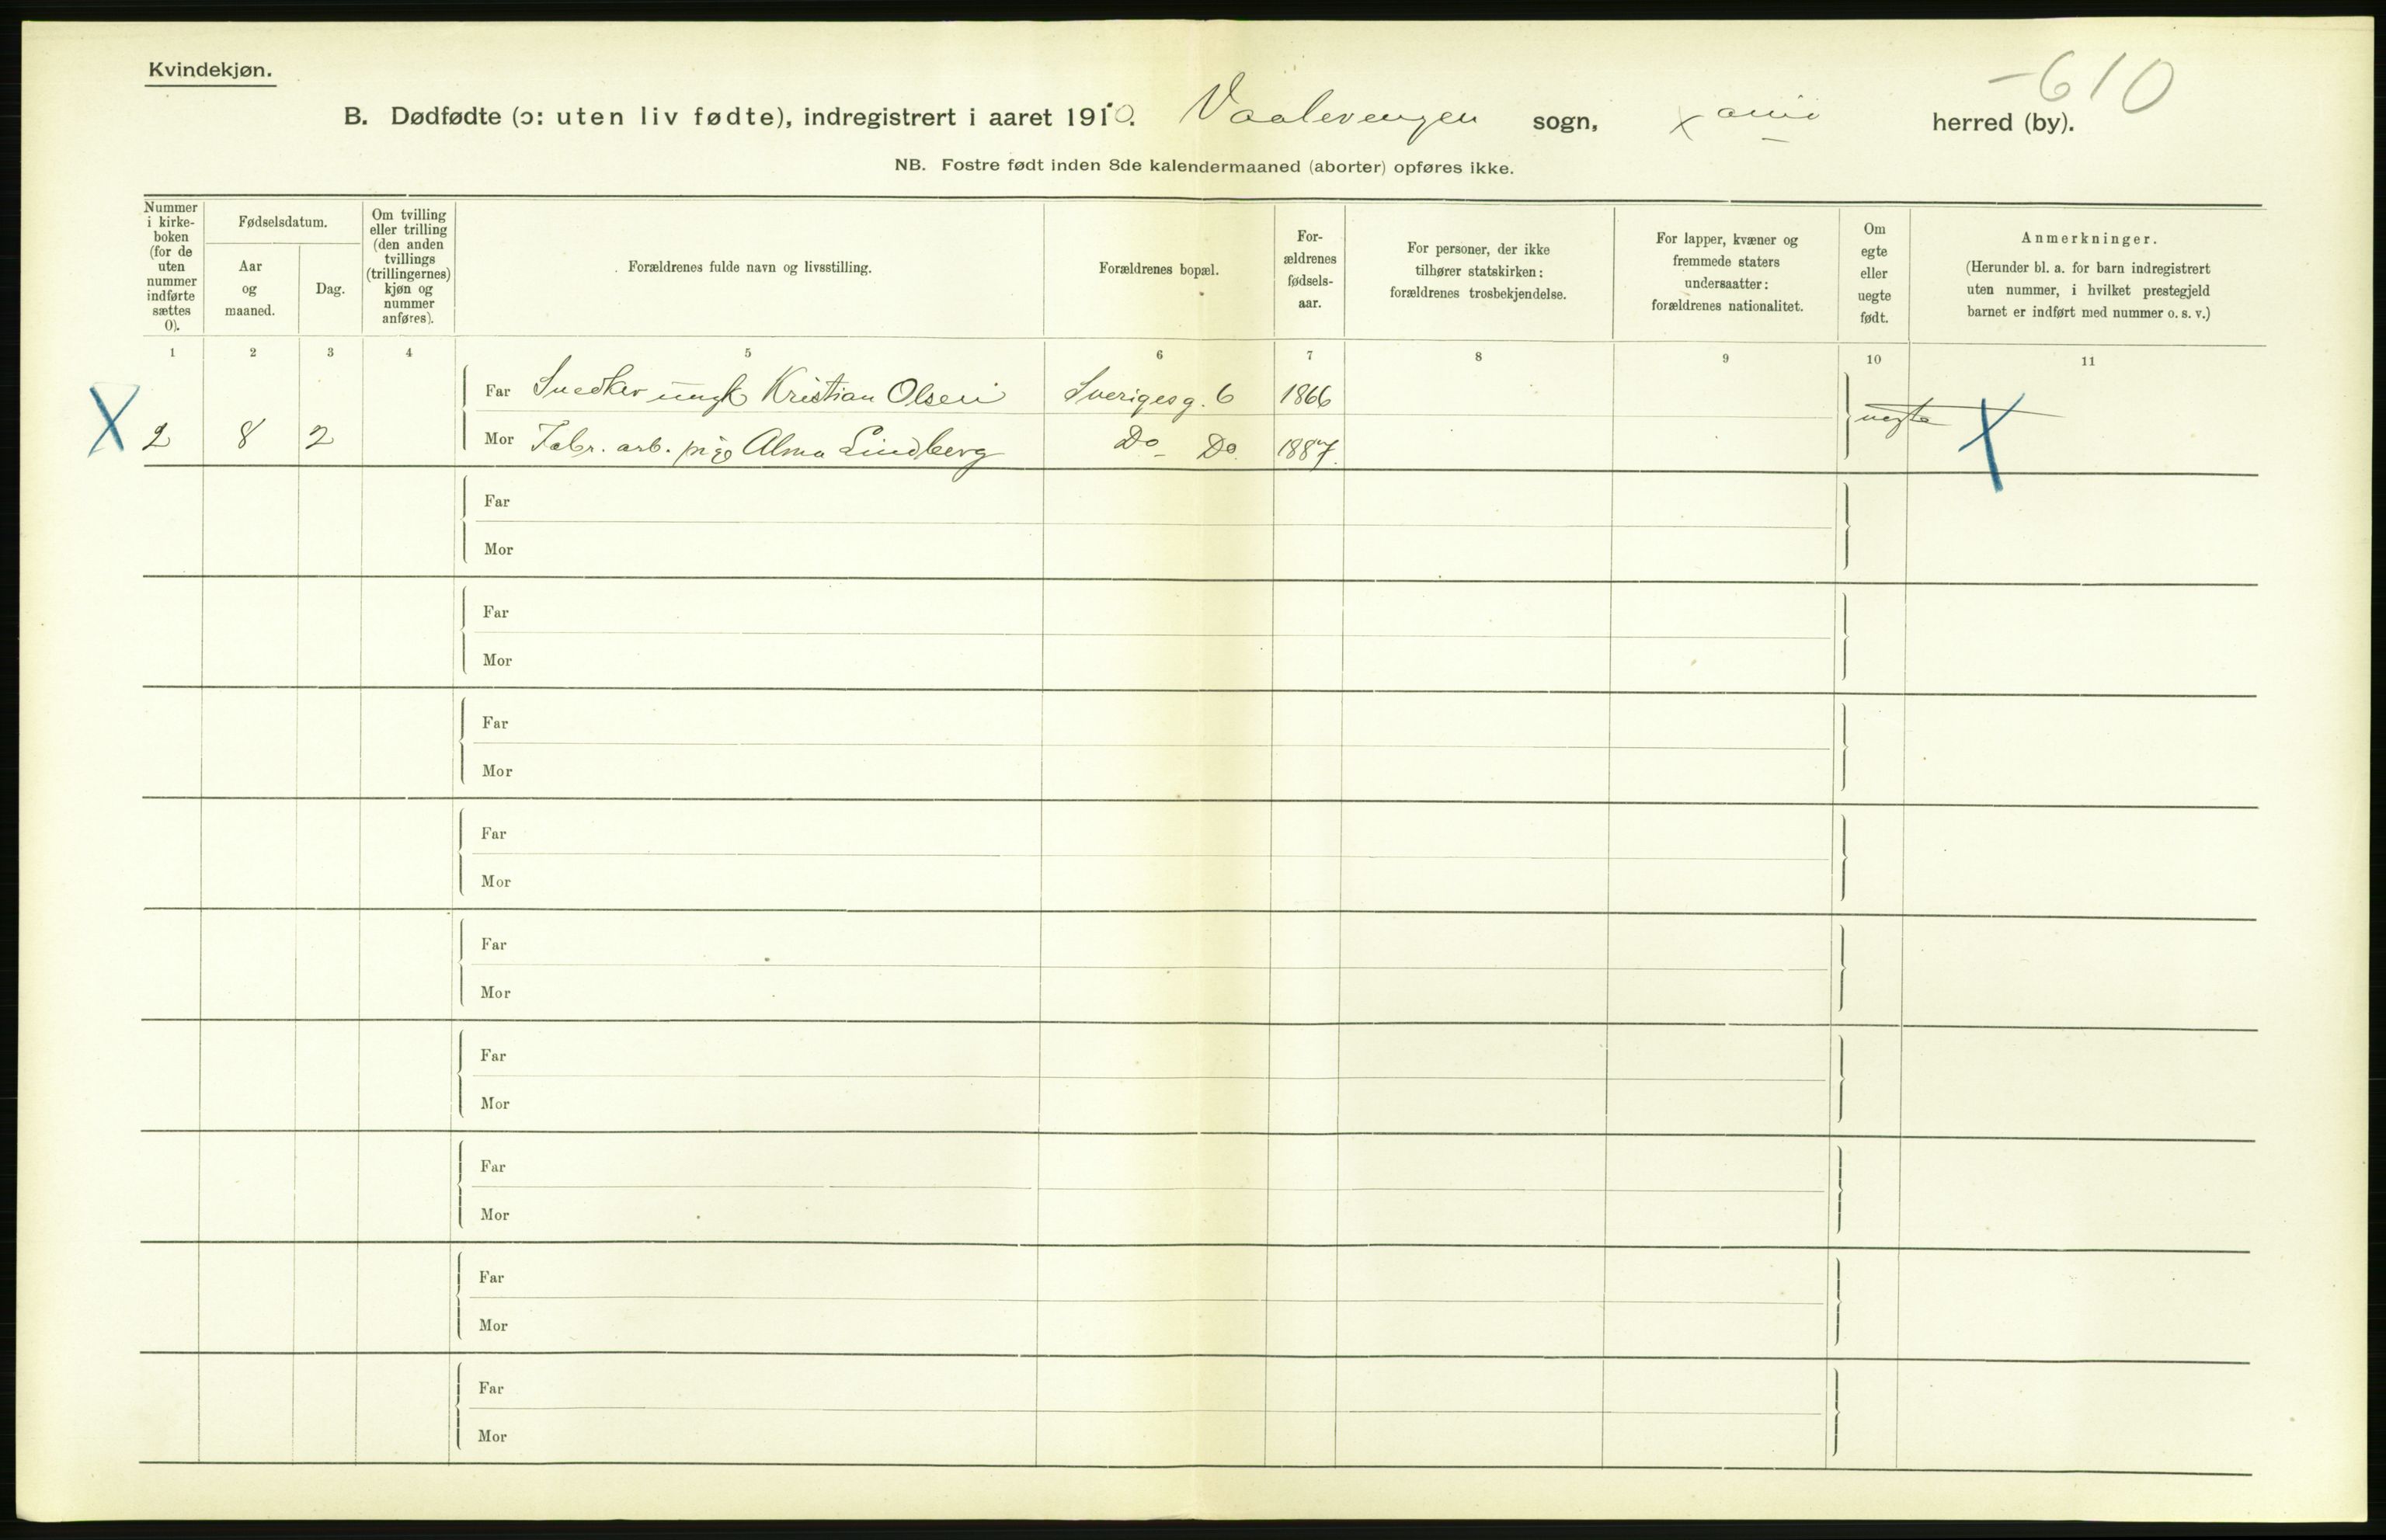 Kvindekjøn.
-610
B. Dødfødte (ɔ: uten liv fødte), indregistrert i aaret 1910. Vaalerengen sogn, Xania herred (by).
NB. Fostre født inden 8de kalendermaaned (aborter) opføres ikke.
Nummer i kirke-
boken
(for de
uten
nummer
indførte
sættes
0).
Fødselsdatum.
Aar
og
maaned.
Dag.
Om tvilling
eller trilling
(den anden
tvillings
(trillingernes)
kjøn og
nummer
anføres).
Forældrenes fulde navn og livsstilling.
Forældrenes bopæl.
For-
ældrenes
fødsels-
aar.
For personer, der ikke
tilhører statskirken:
forældrenes trosbekjendelse.
For lapper, kvæner og
fremmede staters
undersaatter:
forældrenes nationalitet.
Om
egte
eller
uegte
født.
Anmerkninger.
(Herunder bl. a. for barn indregistrert
uten nummer, i hvilket prestegjeld
barnet er indført med nummer o. s. v.)
1 2 3 4 5 6 7 8 9 10 11
Far Snedker ungk Kristian Olsen Sverigesg. 6 1866 uegte X
X 2 8 2 Mor Fabr. arb. pige Alma Lindberg Do - Do. 1887.
Far
Mor
Far
Mor
Far
Mor
Far
Mor
Far
Mor
Far
Mor
Far
Mor
Far
Mor
Far
Mor